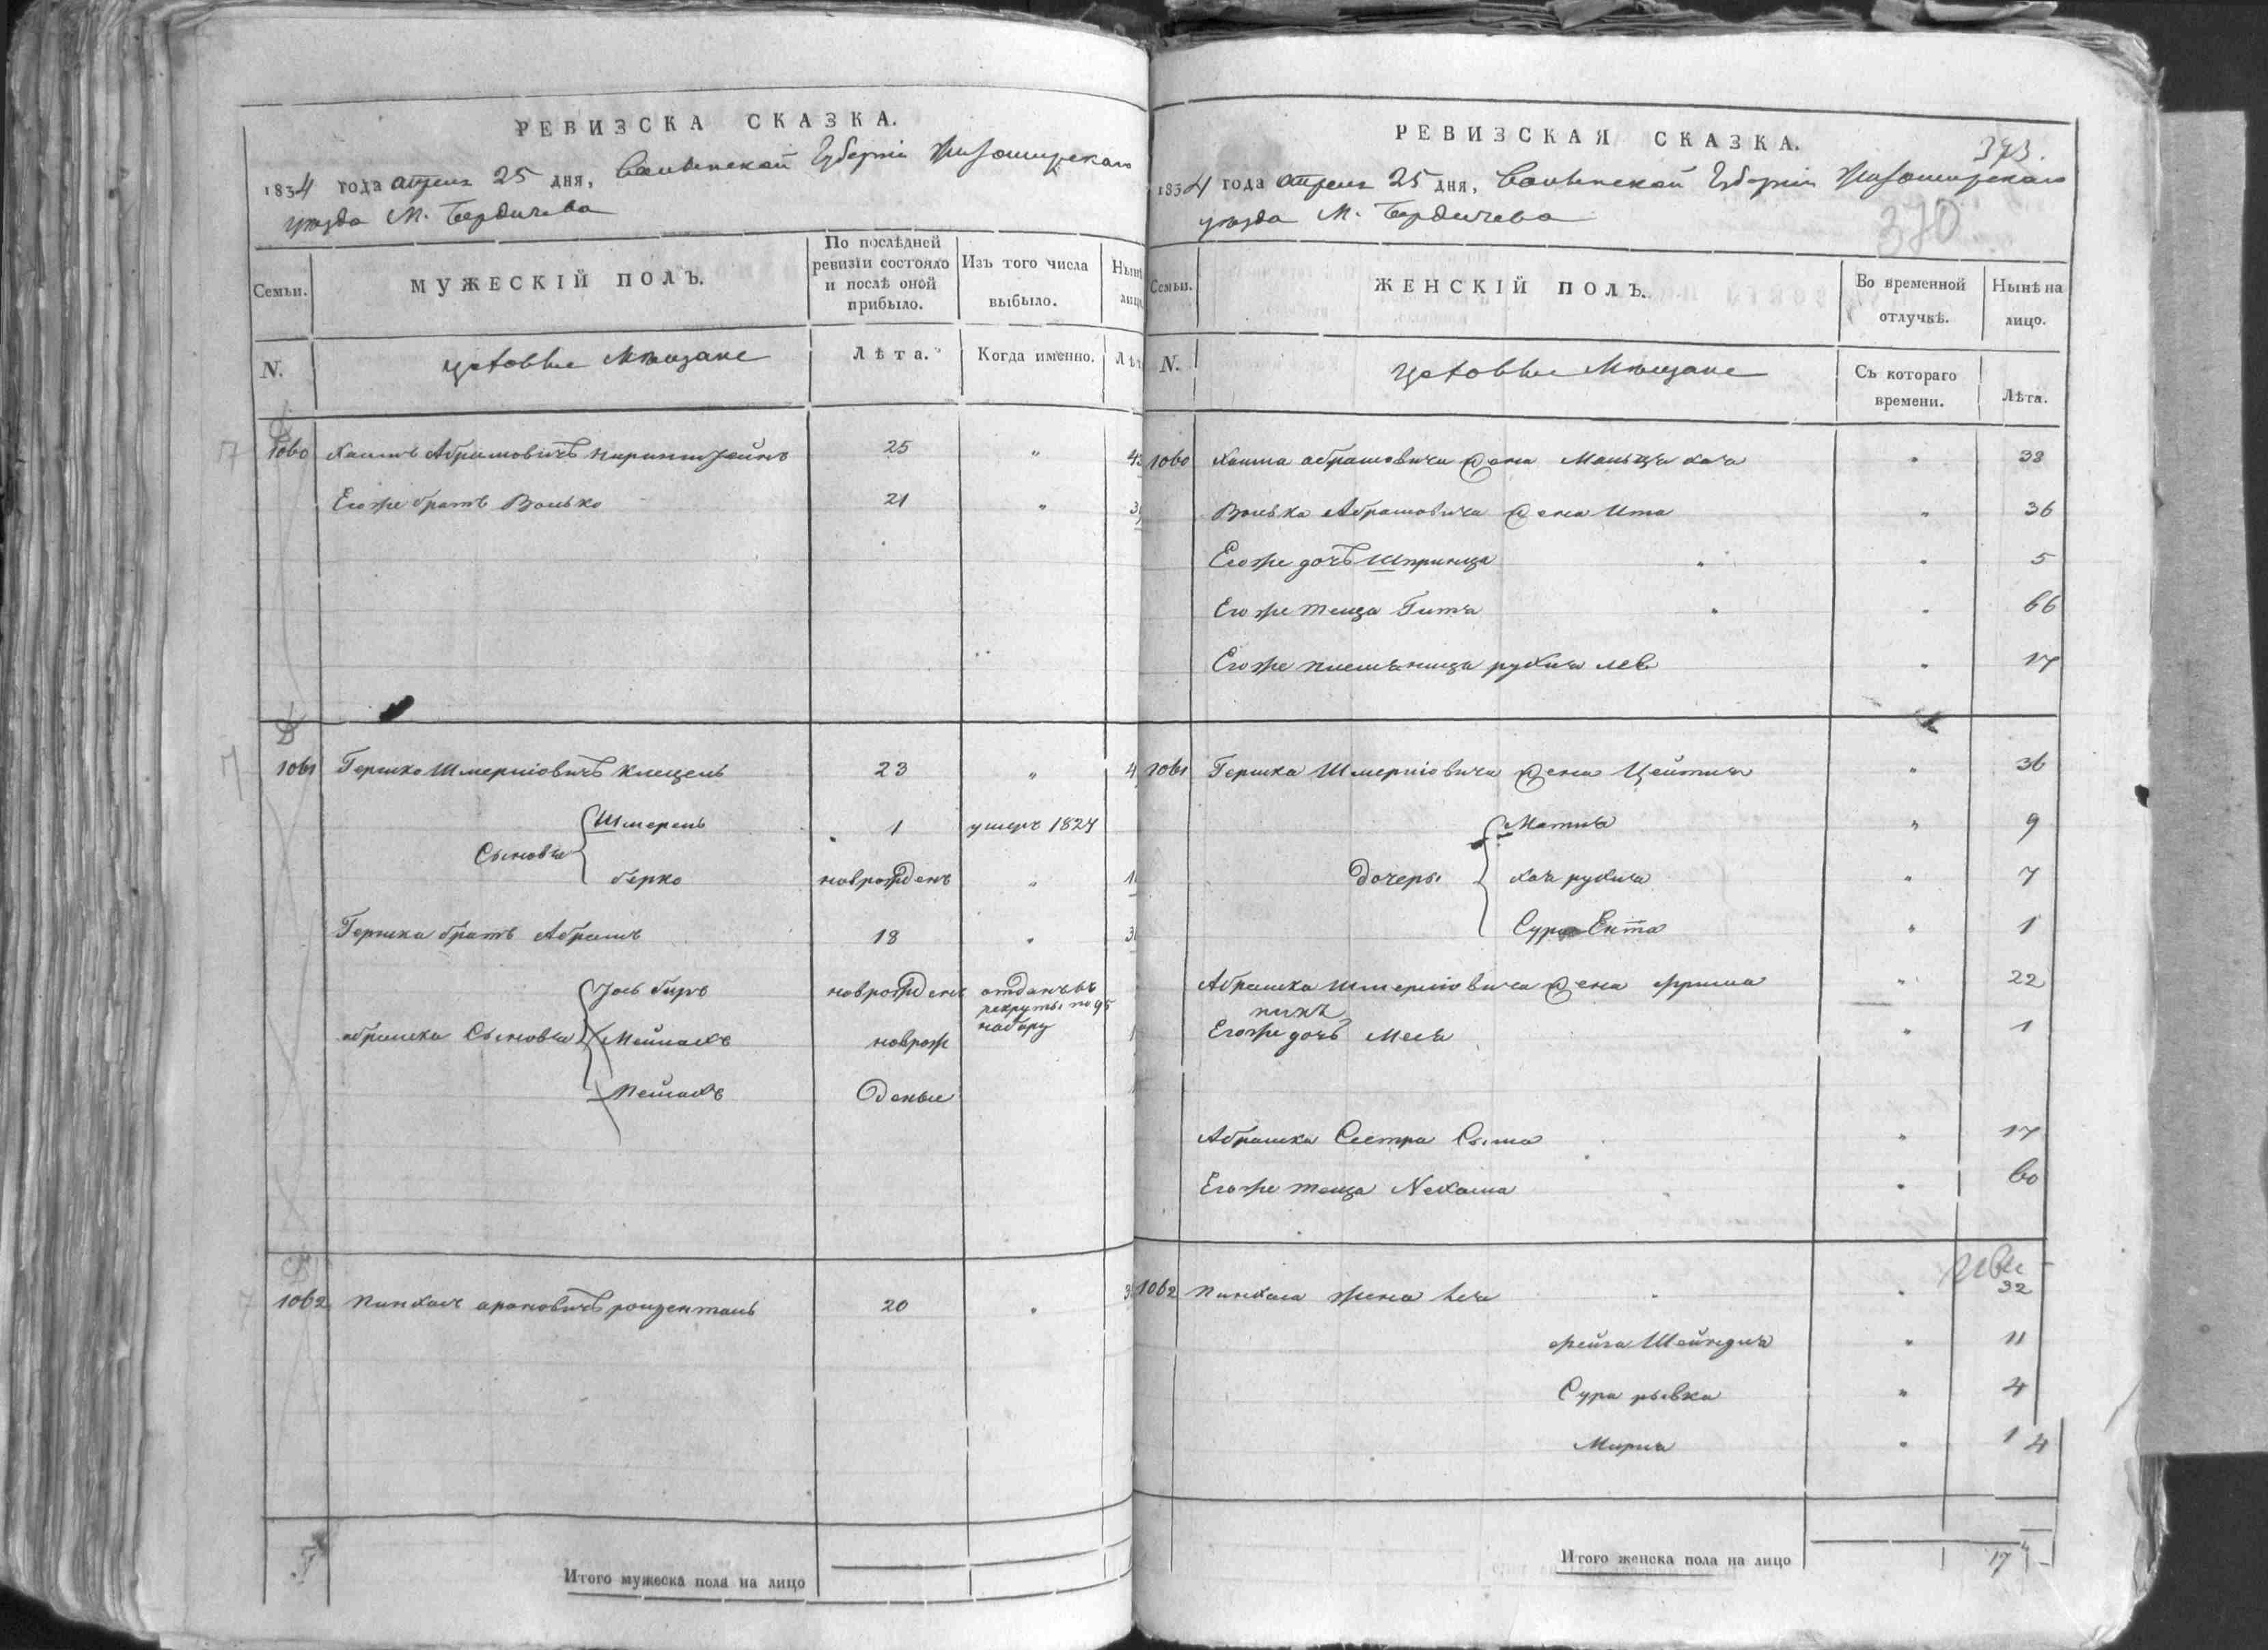 РЕВИЗСКА СКАЗКА.
1834 года апреля 25 дня, Волынской Губерніи Житомирскаго
уезда М. Бердичева
Семьи.
МУЖЕСКІЙ ПОЛЪ.
По послѣдней ревизіи состояло и послѣ оной прибыло.
Изъ того числа выбыло.
N.
Цеховые Мещане
Лѣта.
Когда именно.
1060 Хаимъ Абрамовичъ 25 "
Его же братъ Волько 21 "
1061 Гершко Шмерліовичъ Клецель 23 "
Сыновья
Шмерель 1 умеръ 1827
Берко новорожденъ "
Гершка братъ Абрамъ 18 "
Абрамка Сыновья
Іось новорожденъ отданъ въ рекруты по 95 набору
Мейлахъ новрож
Пейсахъ деные
1062 Пинхасъ Ароновичъ 20 "
Итого мужеска пола на лицо
РЕВИЗСКАЯ СКАЗКА.
373.
1834 года апреля 25 дня, Волынской Губерніи Житомирскаго
уезда М. Бердичева
370
Семьи.
ЖЕНСКІЙ ПОЛЪ.
Во временной отлучкѣ.
Нынѣ на лицо.
N.
Цеховые Мещане
Съ котораго времени.
Лѣта.
1060 Хаима Абрамовича жена Маньця Хая " 38
Волька Абрамовича жена Ита " 36
Его же дочъ Шпринца " 5
Его же теща Гитля " 66
Его же племяница Рухля " 17
1061 Гершка Шмерліовича жена Цейтля " 36
Дочеры
Матля " 9
Хая Рухля " 7
Сура Ента " 1
Абрамка Шмерліовича жена Фрима " 22
Его же дочъ Меля " 1
Абрамка Сестра Сыма " 17
Его же теща Нехама " 60
1062 Пинхаса жена Лея " 32
Фейга Шейндля " 11
Сура Рывка " 4
Мирля " 1 4
Итого женска пола на лицо 17